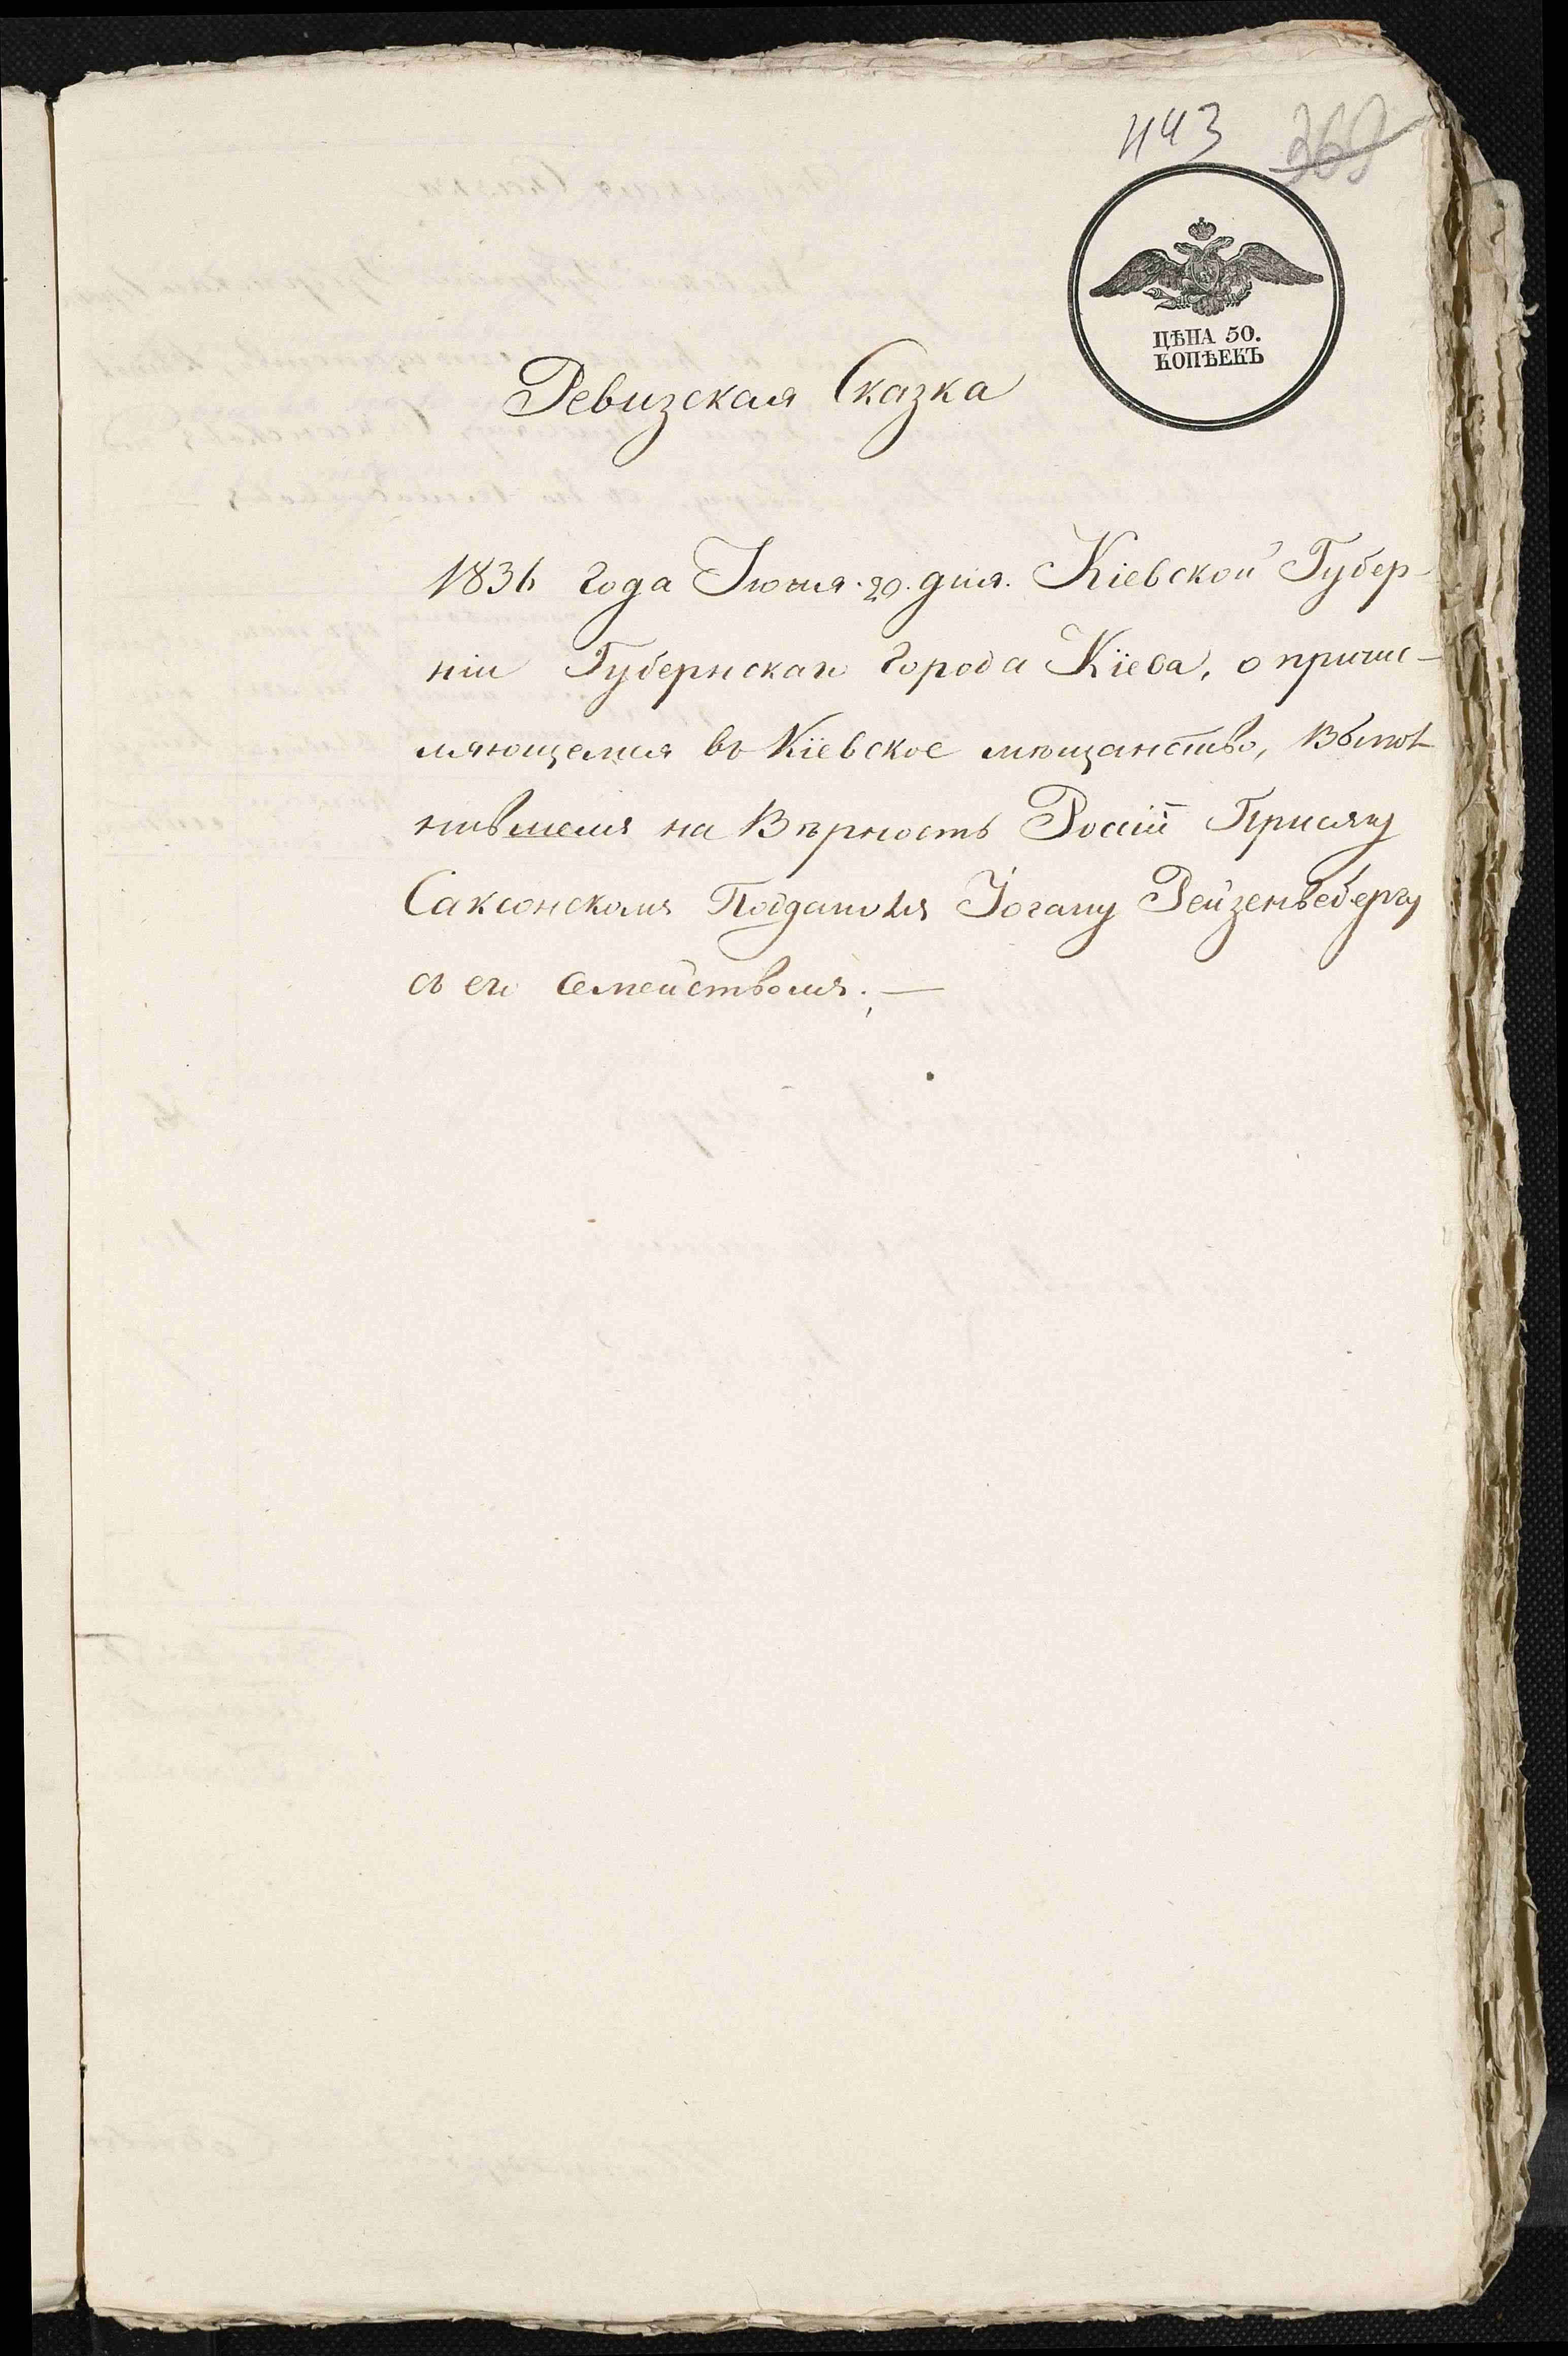 443 369
ЦѢНА 50.
КОПѢЕКЪ
Ревизская Сказка
1836 года Іюня 20. дня. Кіевской Губер-
ніи Губернскаго города Кіева, о причис-
ляющемся въ Кіевское мѣщанство, Выпол-
нившемъ на Вѣрность Россіи Присягу
Саксонскомъ Подданомъ Іогану Рейзенвебергу
съ его семействомъ. —